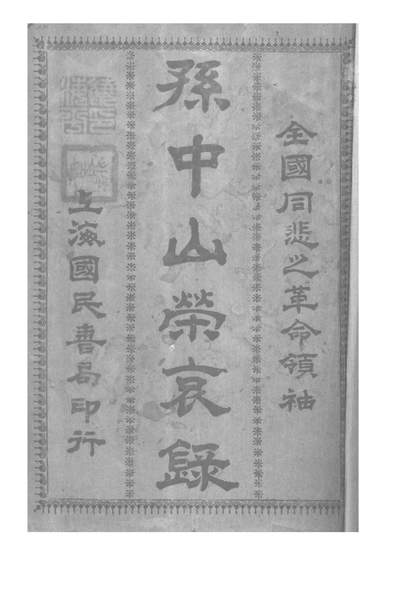 全國同悲之革命領袖
孫中山榮哀錄
上海國民書局印行